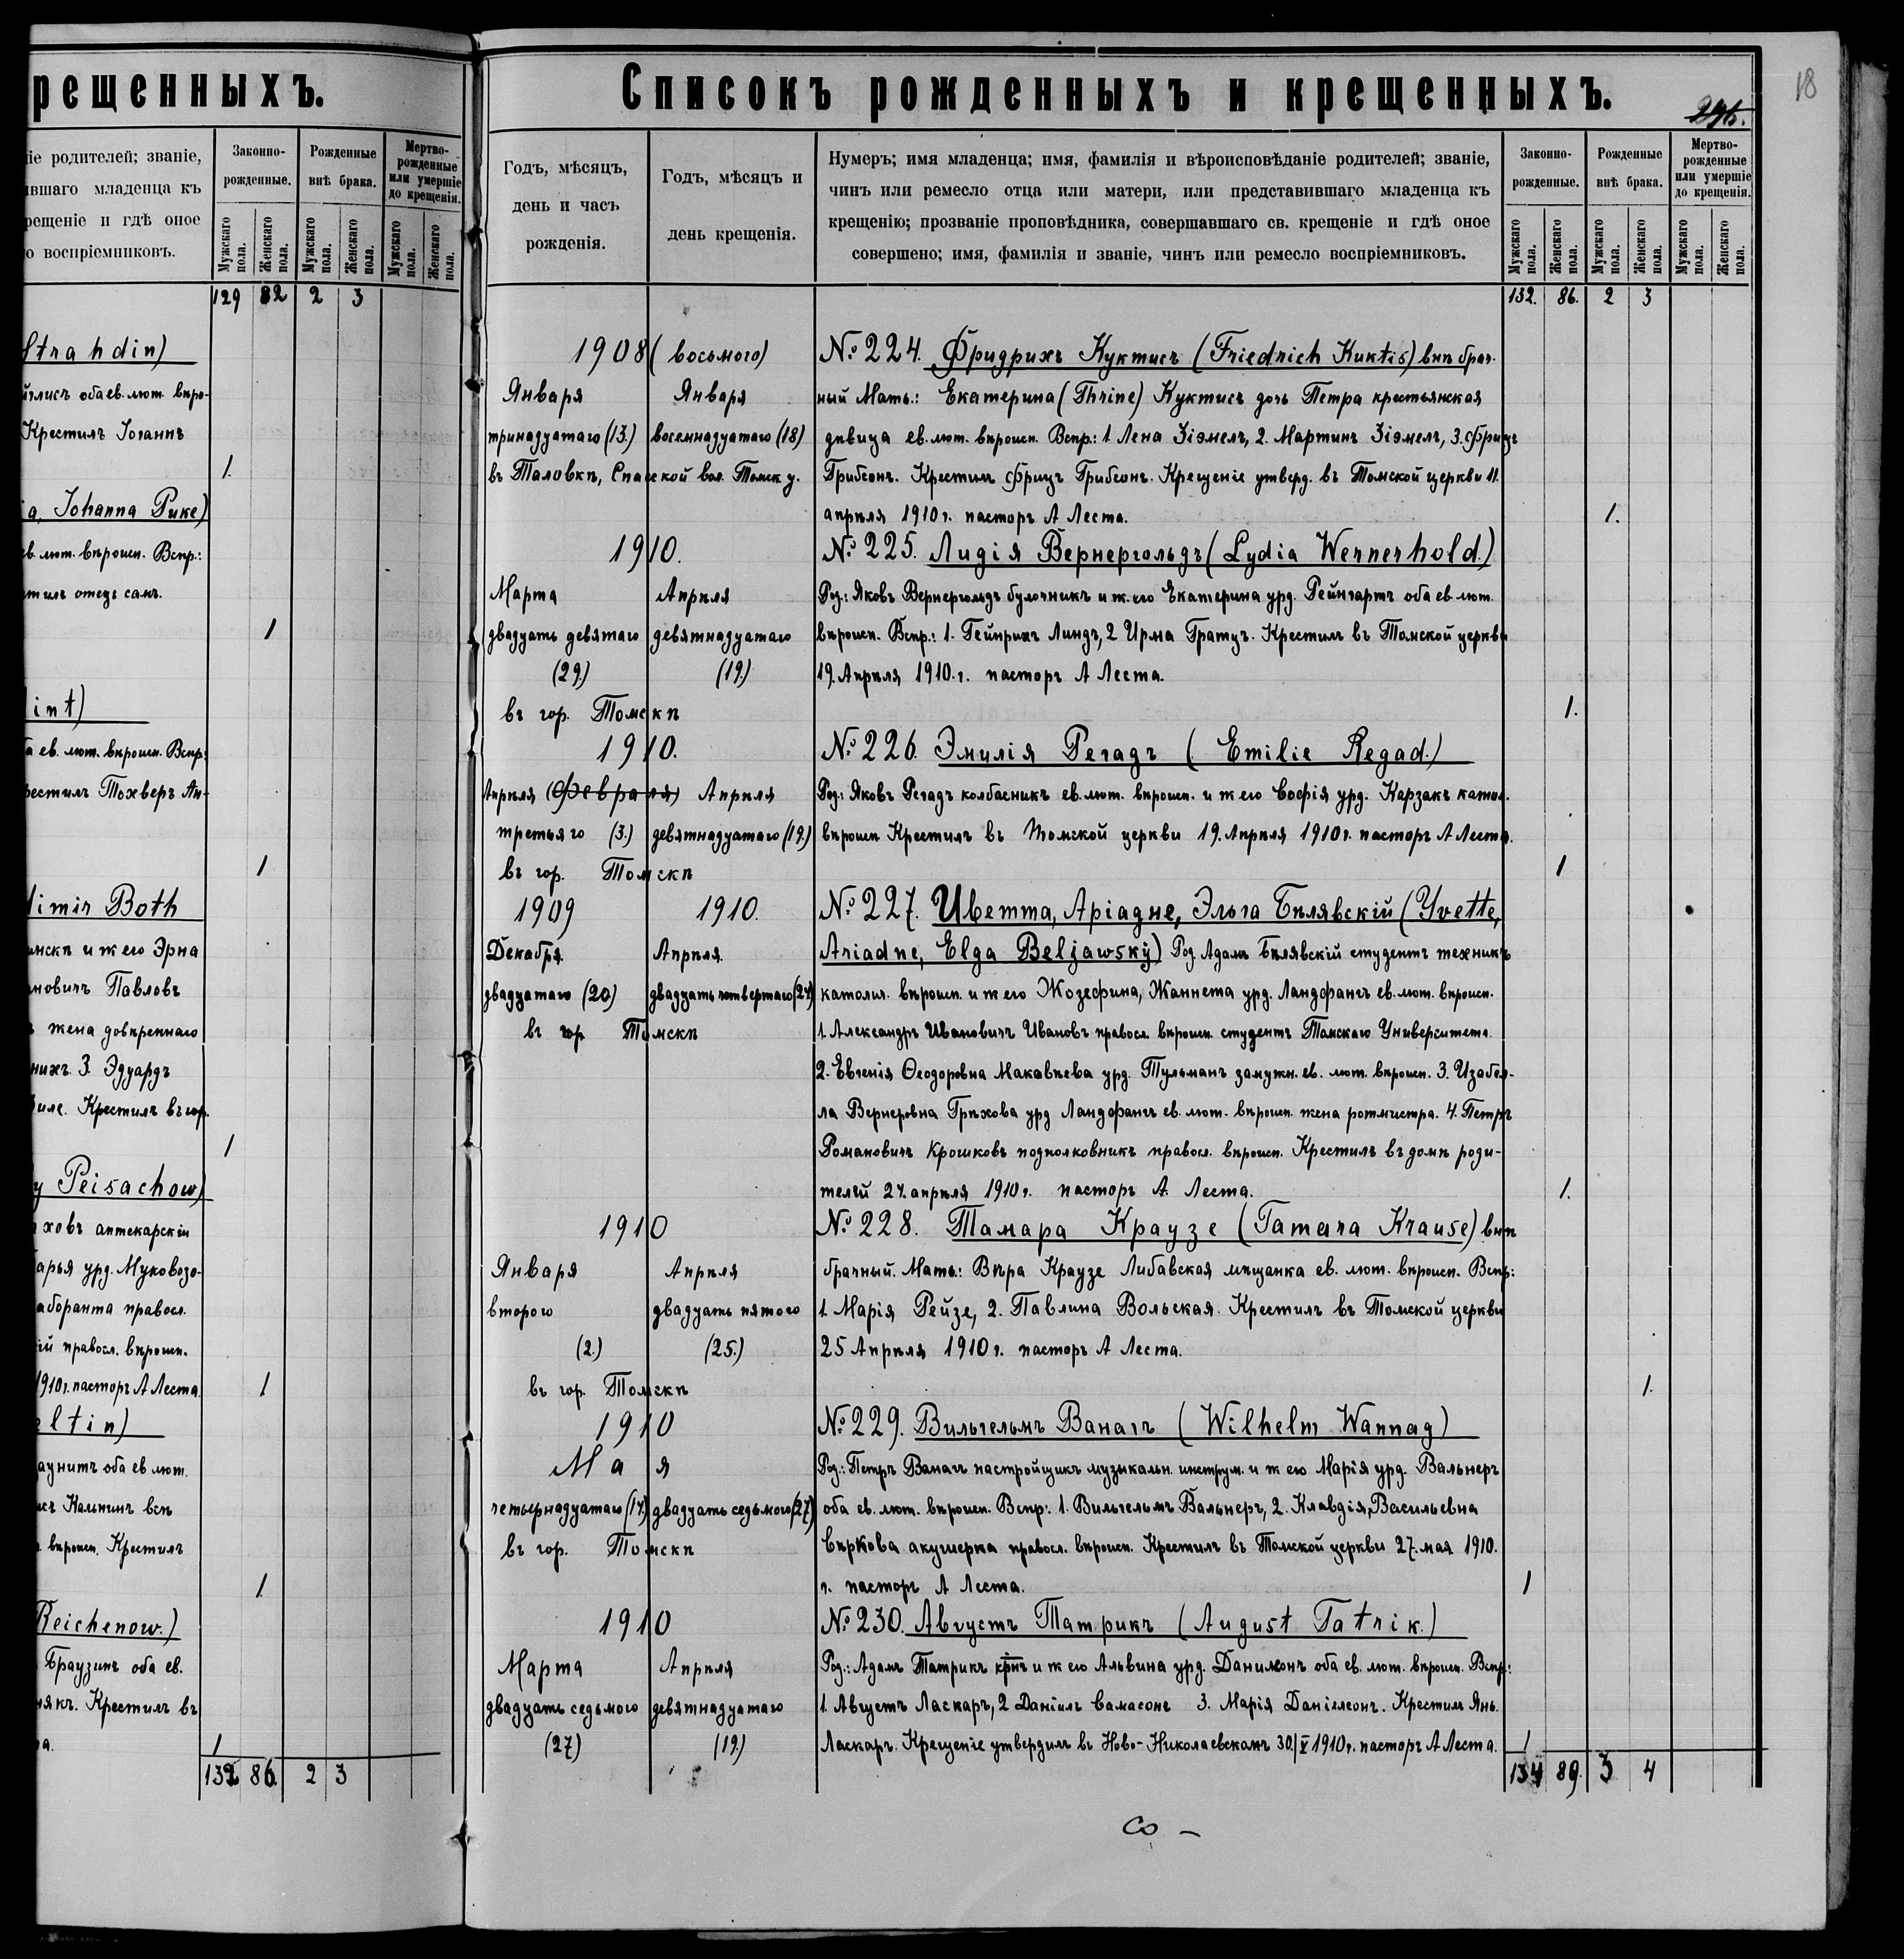 рещенныхъ.
іе родителей; званіе,
вшаго младенца къ
рещеніе и гдѣ оное
о воспріемниковъ.
Законно-
рожденные.
Рожденные
внѣ брака.
Мертво-
рожденные
или умершіе
до крещенія.
Мужскаго пола.
Женскаго пола.
Мужскаго пола.
Женскаго пола.
Мужскаго пола.
Женскаго пола.
129 82 2 3
Strahdin)
оба ев. лют. вѣро-
Крестилъ Іоганъ
1.
a, Johanna Puke)
ев. лют. вѣроисп. Вспр.:
стилъ отецъ самъ.
1
int)
а ев. лют. вѣроисп. Вспр:
рестилъ Тохверъ Ан-
1
dimir Both
инскѣ и ж его Эрна
ановичъ Павловъ
жена довѣреннаго
нихъ 3. Эдуардъ
Крестилъ въ гор.
1
y Peisachow)
ховъ аптекарскій
арья урд. Муковозо-
аборанта правосл.
ій правосл. вѣроисп.
1910 г. пасторъ А Леста.
1
eltin)
аунитъ оба ев лют.
Кальнинъ всѣ
вѣроисп. Крестилъ
1.
Reichenow.)
Браузинъ оба ев.
някъ. Крестилъ въ
а.
1
132 86. 2 3
Списокъ рожденныхъ и крещенныхъ.
18
Годъ, мѣсяцъ,
день и часъ
рожденія.
Годъ, мѣсяцъ и
день крещенія.
Нумеръ; имя младенца; имя, фамилія и вѣроисповѣданіе родителей; званіе,
чинъ или ремесло отца или матери, или представившаго младенца къ
крещенію; прозваніе проповѣдника, совершавшаго св. крещеніе и гдѣ оное
совершено; имя, фамилія и званіе, чинъ или ремесло воспріемниковъ.
Законно-
рожденные.
Рожденные
внѣ брака.
Мертво-
рожденные
или умершіе
до крещенія.
Мужскаго пола.
Женскаго пола.
Мужскаго пола.
Женскаго пола.
Мужскаго пола.
Женскаго пола.
132. 86. 2 3
1908 (восьмого) №224. Фридрихъ Куктисъ (Friedrich Kuktis) внѣ брач-
Января Января ный Мать.: Екатерина (Thrine) Куктисъ дочь Петра крестьянская
тринадцатаго (13.) восемнадцатаго (18) дѣвица ев. лют. вѣроисп. Вспр.: 1. Лена Зіэмелъ, 2. Мартинъ Зіэмелъ, 3. Фрицъ
въ Таловкѣ, Спасской вол. Томск у. Грибсонъ. Крестилъ Фрицъ Грибсонъ. Крещеніе утверд. въ Томской церкви 11.
апрѣля 1910 г. пасторъ А Леста. 1.
1910. №225. Лидія Вернергольдъ (Lydia Wernerhold.)
Марта Апрѣля Род.: Яковъ Вернергольдъ булочникъ и ж. его Екатерина урд. Рейнгартъ оба ев. лют.
двадцать девятаго девятнадцатаго вѣроисп. Вспр.: 1. Гейнрихъ Линдъ, 2 Ирма Гратцъ. Крестилъ въ Томской церкви
(29.) (19.) 19. Апрѣля 1910. г. пасторъ А Леста.
въ гор. Томскѣ 1.
1910. №226. Эмилія Регадъ (Emilie Regad.)
Апрѣля (Февраля) Апрѣля Род.: Яковъ Регадъ колбасникъ ев. лют. вѣроисп. и ж его Софія урд. Карзакъ катол.
третьяго (3.) девятнадцатаго (19.) вѣроисп Крестилъ въ Томской церкви 19. Апрѣля 1910 г. пасторъ А Леста.
въ гор. Томскѣ 1
1909 1910. №227. Иветта, Аріадне, Эльга Бѣлявскій (Yvette,
Декабря Апрѣля. Ariadne, Elga Beljawsky) Род. Адамъ Бѣлявскій студентъ техникъ
двадцатаго (20) двадцать четвертаго (24) католич. вѣроисп. и ж его Жозефина, Жаннета урд. Ландфангъ ев. лют. вѣроисп.
въ гор. Томскѣ 1. Александръ Ивановичъ Ивановъ правосл. вѣроисп. студентъ Томскаго Университета.
2. Евгенія Ѳеодоровна Макавѣева урд. Тульманъ замужн. ев. лют. вѣроисп. 3. Изабел-
ла Вернеровна Грѣхова урд Ландфангъ ев. лют. вѣроисп. жена ротмистра. 4. Петръ
Романовичъ Крошковъ подполковникъ правосл. вѣроисп. Крестилъ въ домѣ роди-
телей 24. апрѣля 1910 г. пасторъ А. Леста. 1.
1910 №228. Тамара Краузе (Tamara Krause) внѣ
Января Апрѣля брачный. Мать: Вѣра Краузе Либавская мѣщанка ев. лют. вѣроисп. Вспр:
второго двадцать пятого 1. Марія Рейзе, 2. Павлина Вольская. Крестилъ въ Томской церкви
(2.) (25.) 25 Апрѣля 1910 г. пасторъ А Леста.
въ гор. Томскѣ 1.
1910 №229. Вильгельмъ Ванагъ (Wilhelm Wannag)
Мая Род.: Петръ Ванагъ настройщикъ музыкальн. инструм. и ж его Марія урд. Вальнеръ
четырнадцатаго (14.) двадцать седьмого (27) оба ев. лют. вѣроисп. Вспр: 1. Вильгельмъ Вальнеръ, 2. Клавдія, Васильевна
въ гор. Томскѣ Сѣркова акушерка правосл. вѣроисп. Крестилъ въ Томской церкви 27. мая 1910.
г. пасторъ А Леста. 1
1910 №230. Августъ Татрикъ (August Tatrik.)
Марта Апрѣля Род.: Адамъ Татрикъ крнъ и ж его Альвина урд. Данилсонъ оба ев. лют. вѣроисп. Вспр.:
двадцать седьмого девятнадцатаго 1. Августъ Ласкаръ, 2 Даніилъ Самасонъ 3. Марія Даніелсонъ. Крестилъ Янъ.
(27) (19.) Ласкаръ. Крещеніе утвердилъ въ Ново-Николаевскомъ 30/V 1910 г. пасторъ А Леста. 1
134 89. 3 4